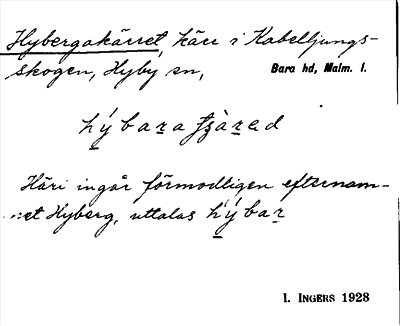 Hybergakärret, kärr i Kabelljungs-
skogen, Hyby sn, Bara hd, Malm. l.
hýbara
Häri ingår förmodligen efternam-
net Hyberg, uttalas hýbar
I. INGERS 1928